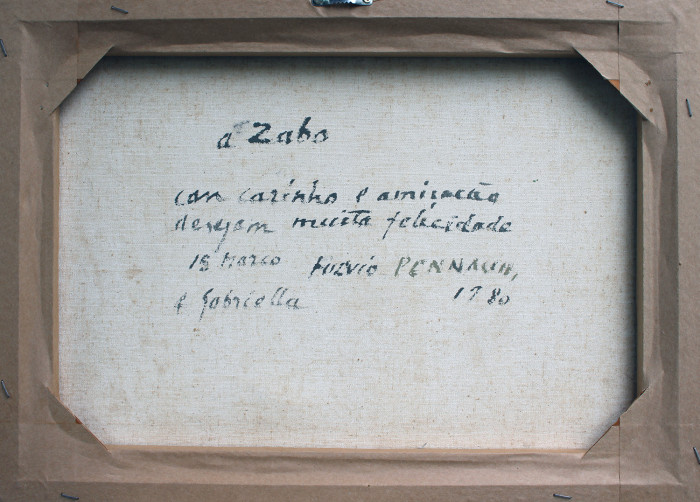 a Zabo
com carinho e amisação
desejam muita felicidade
18 Março Fulvio PENNACCHI,
e Gabriella 1980